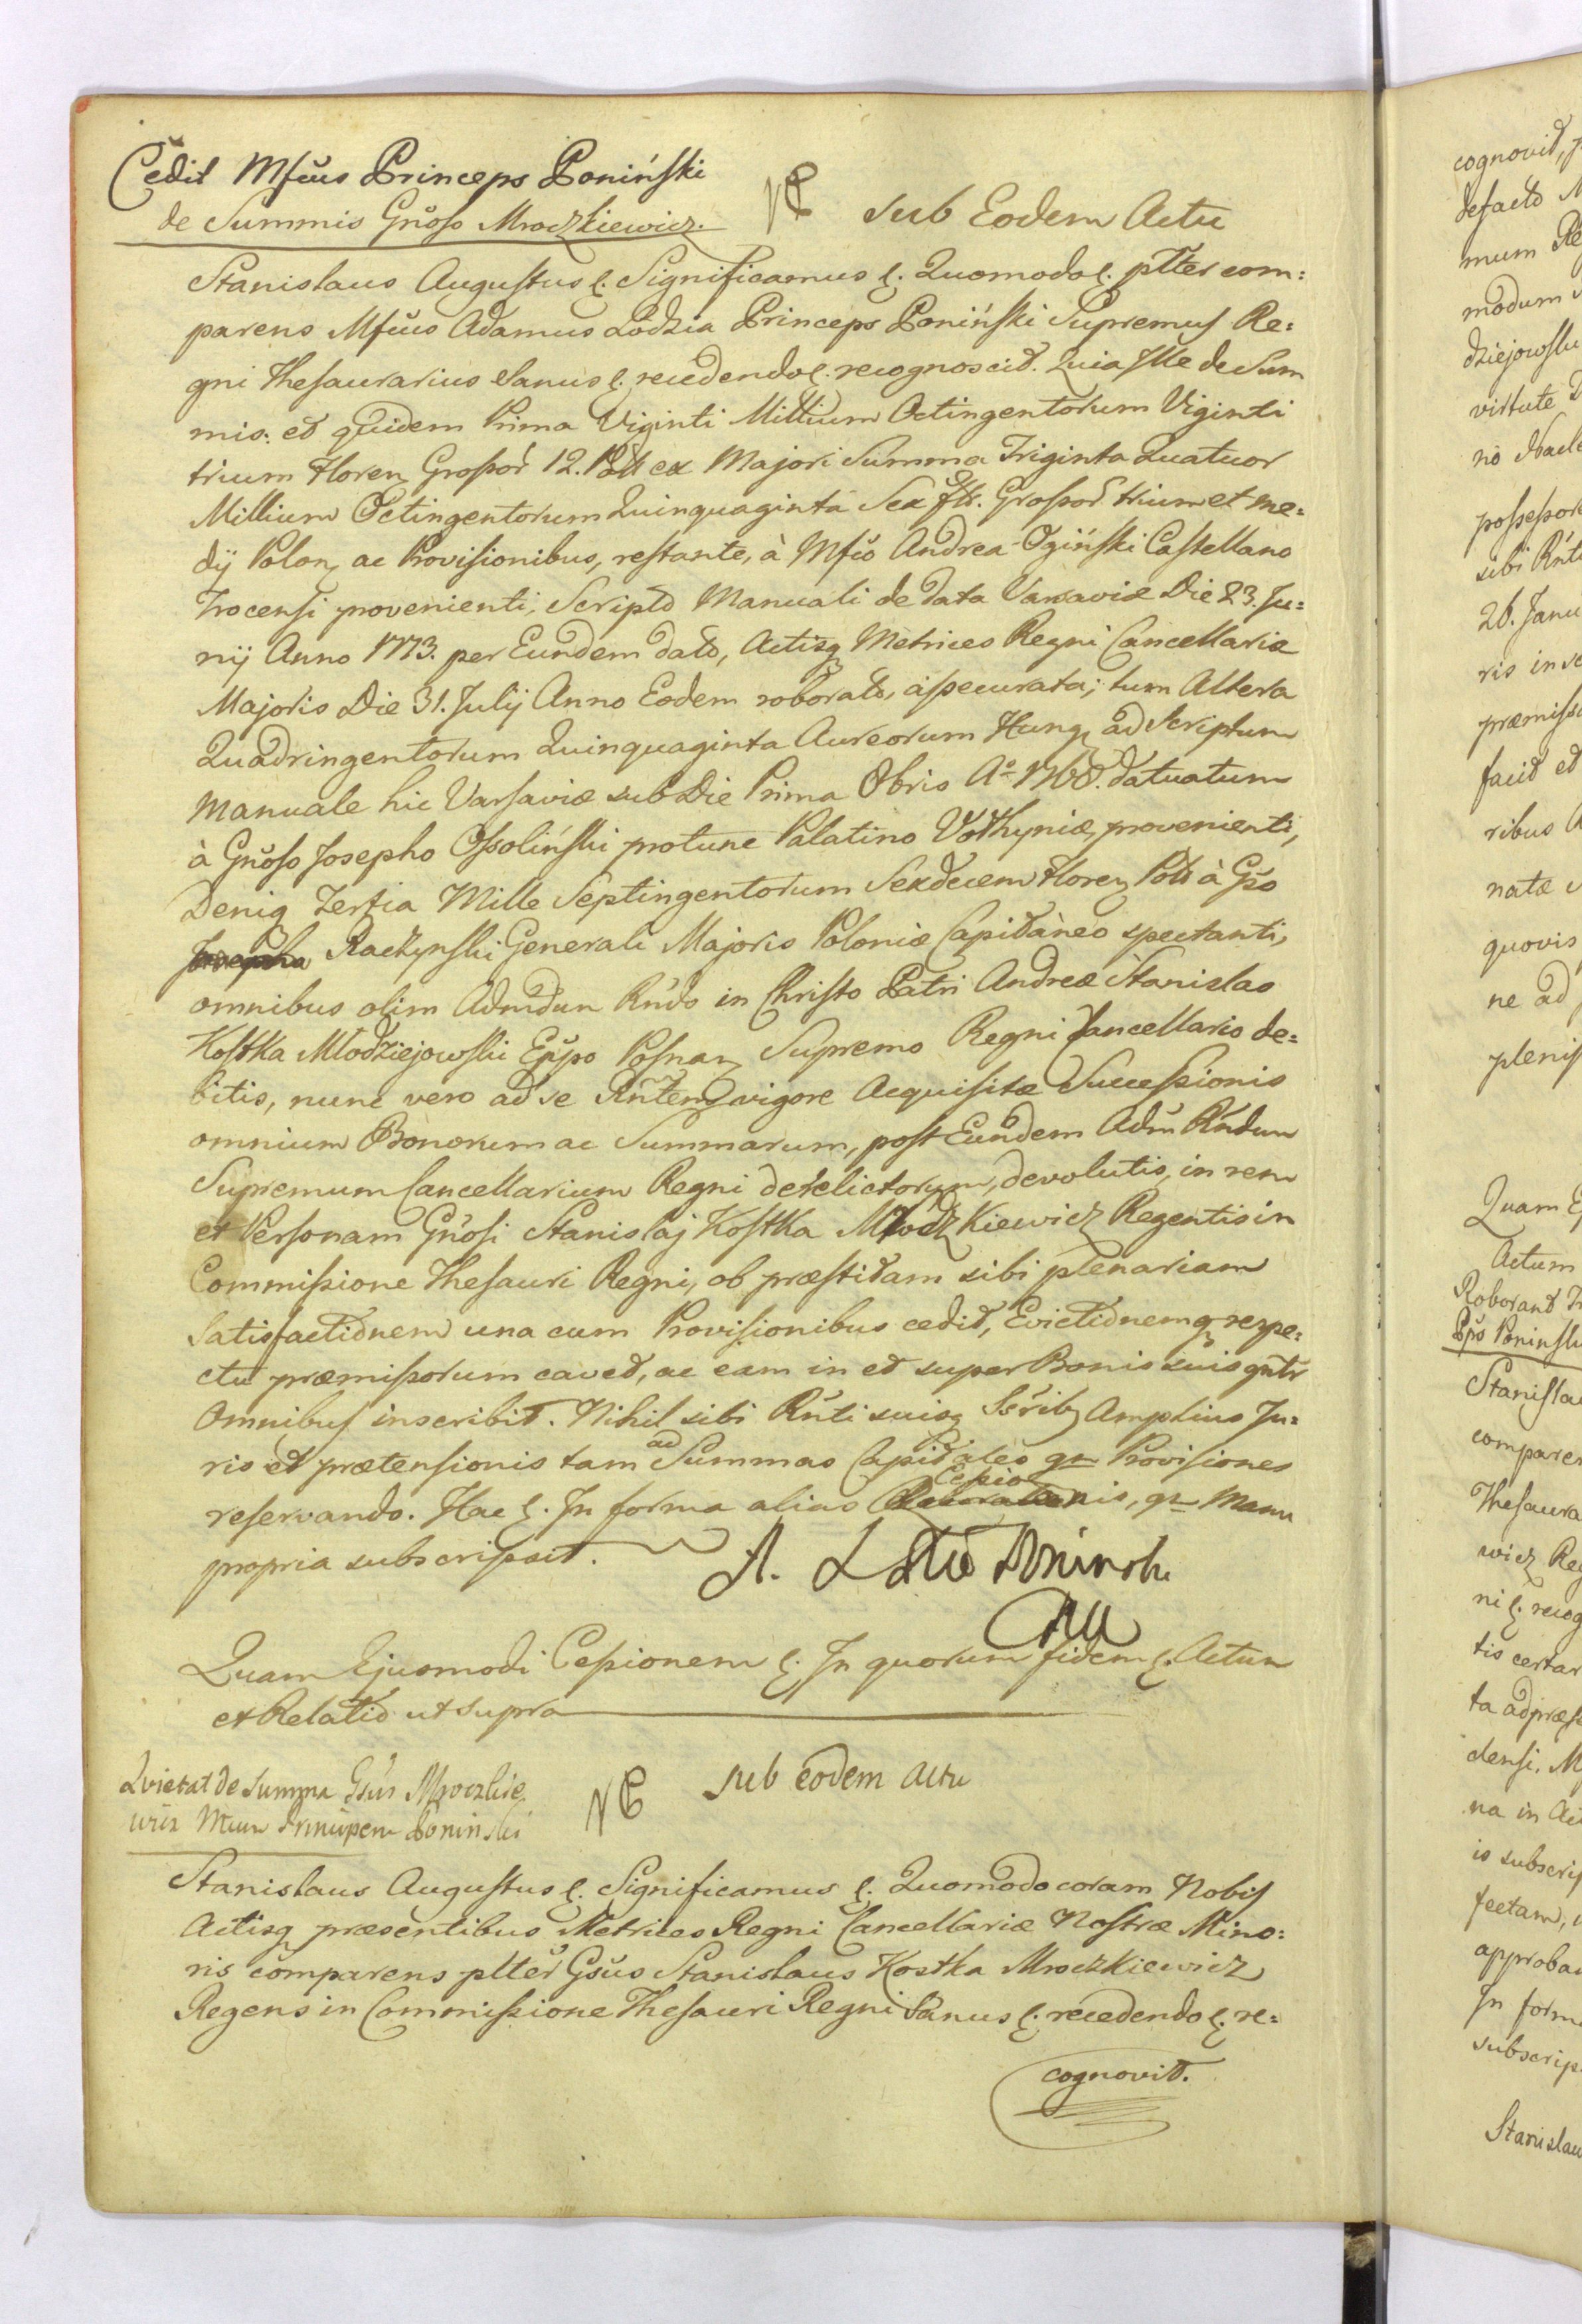 Cedit Mfcus Princeps Poniński
de Summis Gnoso Mroczkiewicz.
NC sub Eodem Actu
Stanislaus Augustus &. Significamus &. Quomodo &. plter com:
parens Mfcus Adamus Łodzia Princeps Poniński Supremus Re:
gni Thesaurarius Sanus &. recedendo &. recognoscit. Quia Ille de Sum
mis: et quidem Prima Viginti Millium Octingentorum Viginti
trium Floren Grossor 12. Poll ex Majori Summa Triginta Quatuor
Millium Octingentorum Quinquaginta Sex flr. Grossor trium et me:
dij Polon ac Provisionibus, restante, à Mfco Andrea Ogiński Castellano
Trocensi provenienti, Scripto Manuali de data Varsaviæ Die 23. Ju:
nij Anno 1773. per Eundem dato, Actisq Metrices Regni Cancellariæ
Majoris Die 31. Julij Anno Eodem roborato, assecurata; tum Altera
Quadringentorum Quinquaginta Aureorum Hung ad Scriptum
Manuale hic Varsaviæ sub Die Prima 8bris Aº 1768. datuatum
à Gnoso Josepho Ossoliński protunc Palatino Volhyniæ, provenienti,
Deniq Tertia Mille Septingentorum Sexdecem Floren Poll à Gso
Josepho Raczynski Generali Majoris Poloniæ Capitaneo spectanti,
omnibus olim Admdum Rndo in Christo Patri Andreæ Stanislao
Kostka Młodziejowski Eppo Posnan Supremo Regni Cancellario de:
bitis, nunc vero ad se Rntem vigore Acquisitæ Successionis
omnium Bonorum ac Summarum, post Eundem Adm Rndum
Supremum Cancellarium Regni derelictorum, devolutis, in rem
et Personam Gnosi Stanislaj Kostka Mroczkiewicz Regentis in
Commissione Thesauri Regni, ob præstitam sibi plenariam
Satisfactionem una cum Provisionibus cedit, Evictionemq respe:
ctu præmissorum cavet, ac eam in et super Bonis suis gntr
Omnibus inscribit. Nihil sibi Rnti suisq Scrib Amplius Ju:
ris et prætensionis tam ad Summas Capitales qm Provisiones
reservando. Hac &. In forma alias Cessionis, qm Manu
propria subscripsit. A. Poninski
Quam Ejusmodi Cessionem &. In quorum fidem &. Actum
et Relatio ut supra
Quietat de Summa Gsus Mroczkie
wicz Mcum Principem Poninski
NC sub eodem actu
Stanislaus Augustus &. Significamus &. Quomodo coram Nobis
Actisq præsentibus Metrices Regni Cancellariæ Nostræ Mino:
ris comparens plter Gsus Stanislaus Kostka Mroczkiewicz
Regens in Commissione Thesauri Regni Sanus &. recedendo &. re:
cognovit.
cognovit,
defacto
mum
modum
virtute
possessore
sibi
26. Janu
ris
præmiss
facit et
ribus
natæ
quovis
ne ad
plenis
Quam
Actum
Roborant
Pps Poninski
Stanisla
comparen
Thesaura
wicz Reg
ni &. recog
tis certar
ta ad præs
densi,
na in
is subscrip
fectam,
approba
In form
subscrip
Stanislau